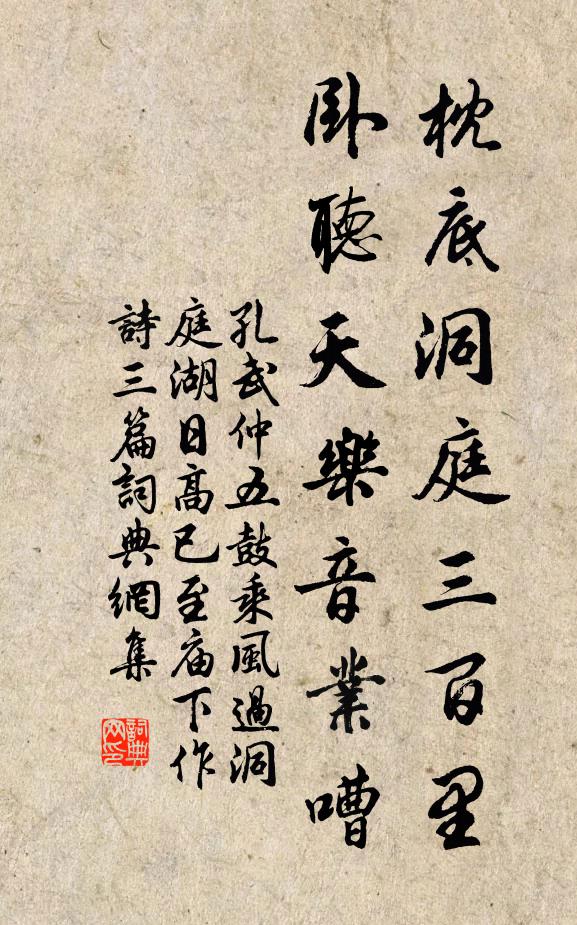 枕底洞庭三百里
卧聽天樂音業嘈
孔武仲五鼓乘風過洞
庭湖日高已至庙下作
詩三篇詞典網集
詞典网印